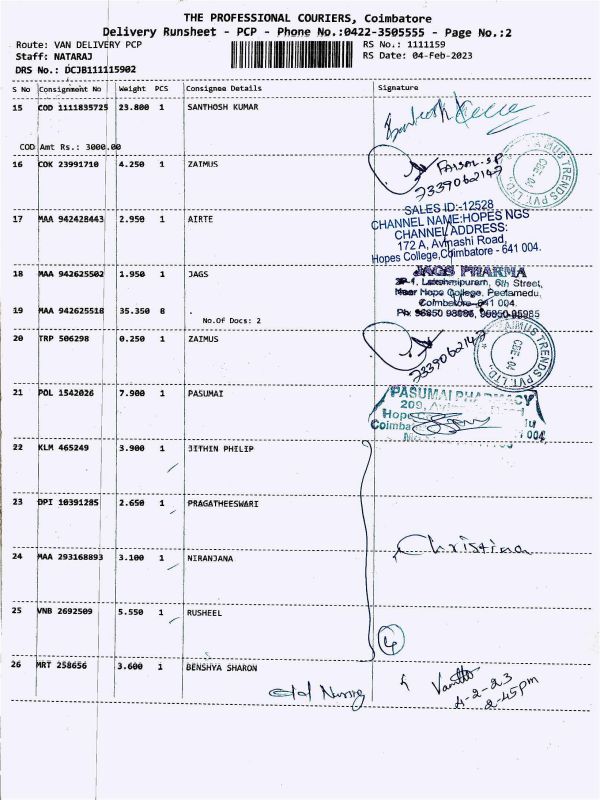 THE PROFESSIONAL COURIERS, Coimbatore
Delivery Runsheet - PCP - Phone No.:0422-3505555 - Page No.:2
Route: VAN DELIVERY PCP
RS No.: 1111159
Staff: NATARAJ
RS Date: 04-Feb-2023
DRS No.: DCJB111115902
S No Consignment No Weight PCS Consignee Details Signature
15 COD 1111835725 23.800 1 SANTHOSH KUMAR
COD Amt Rs.: 3000.00
16 COK 23991710 4.250 1 ZAIMUS
FAISAL.S.P
7339062147
ZAIMUS TRENDS PVT. LTD.
CBE-04
17 MAA 942428443 2.950 1 AIRTE
SALES ID:-12528
CHANNEL NAME:HOPES NGS
CHANNEL ADDRESS:
172 A, Avinashi Road,
Hopes College,Coimbatore - 641 004.
18 MAA 942625502 1.950 1 JAGS
JAGS PHARMA
Lakshmipuram, 6th Street,
Near Hope College, Peelamedu,
Coimbatore-641 004.
Ph: 96850 98985, 96850-95985
19 MAA 942625518 35.350 8 .
No.Of Docs: 2
20 TRP 506298 0.250 1 ZAIMUS
7339062147
ZAIMUS TRENDS PVT. LTD.
CBE-04
21 POL 1542026 7.900 1 PASUMAI
PASUMAI PHARMACY
209,
Hope
Coimba
004
22 KLM 465249 3.900 1 JITHIN PHILIP
23 DPI 10391285 2.650 1 PRAGATHEESWARI
24 MAA 293168893 3.100 1 NIRANJANA
Christina
25 VNB 2692509 5.550 1 RUSHEEL
4
26 MRT 258656 3.600 1 BENSHYA SHARON
4-2-23
2-45pm